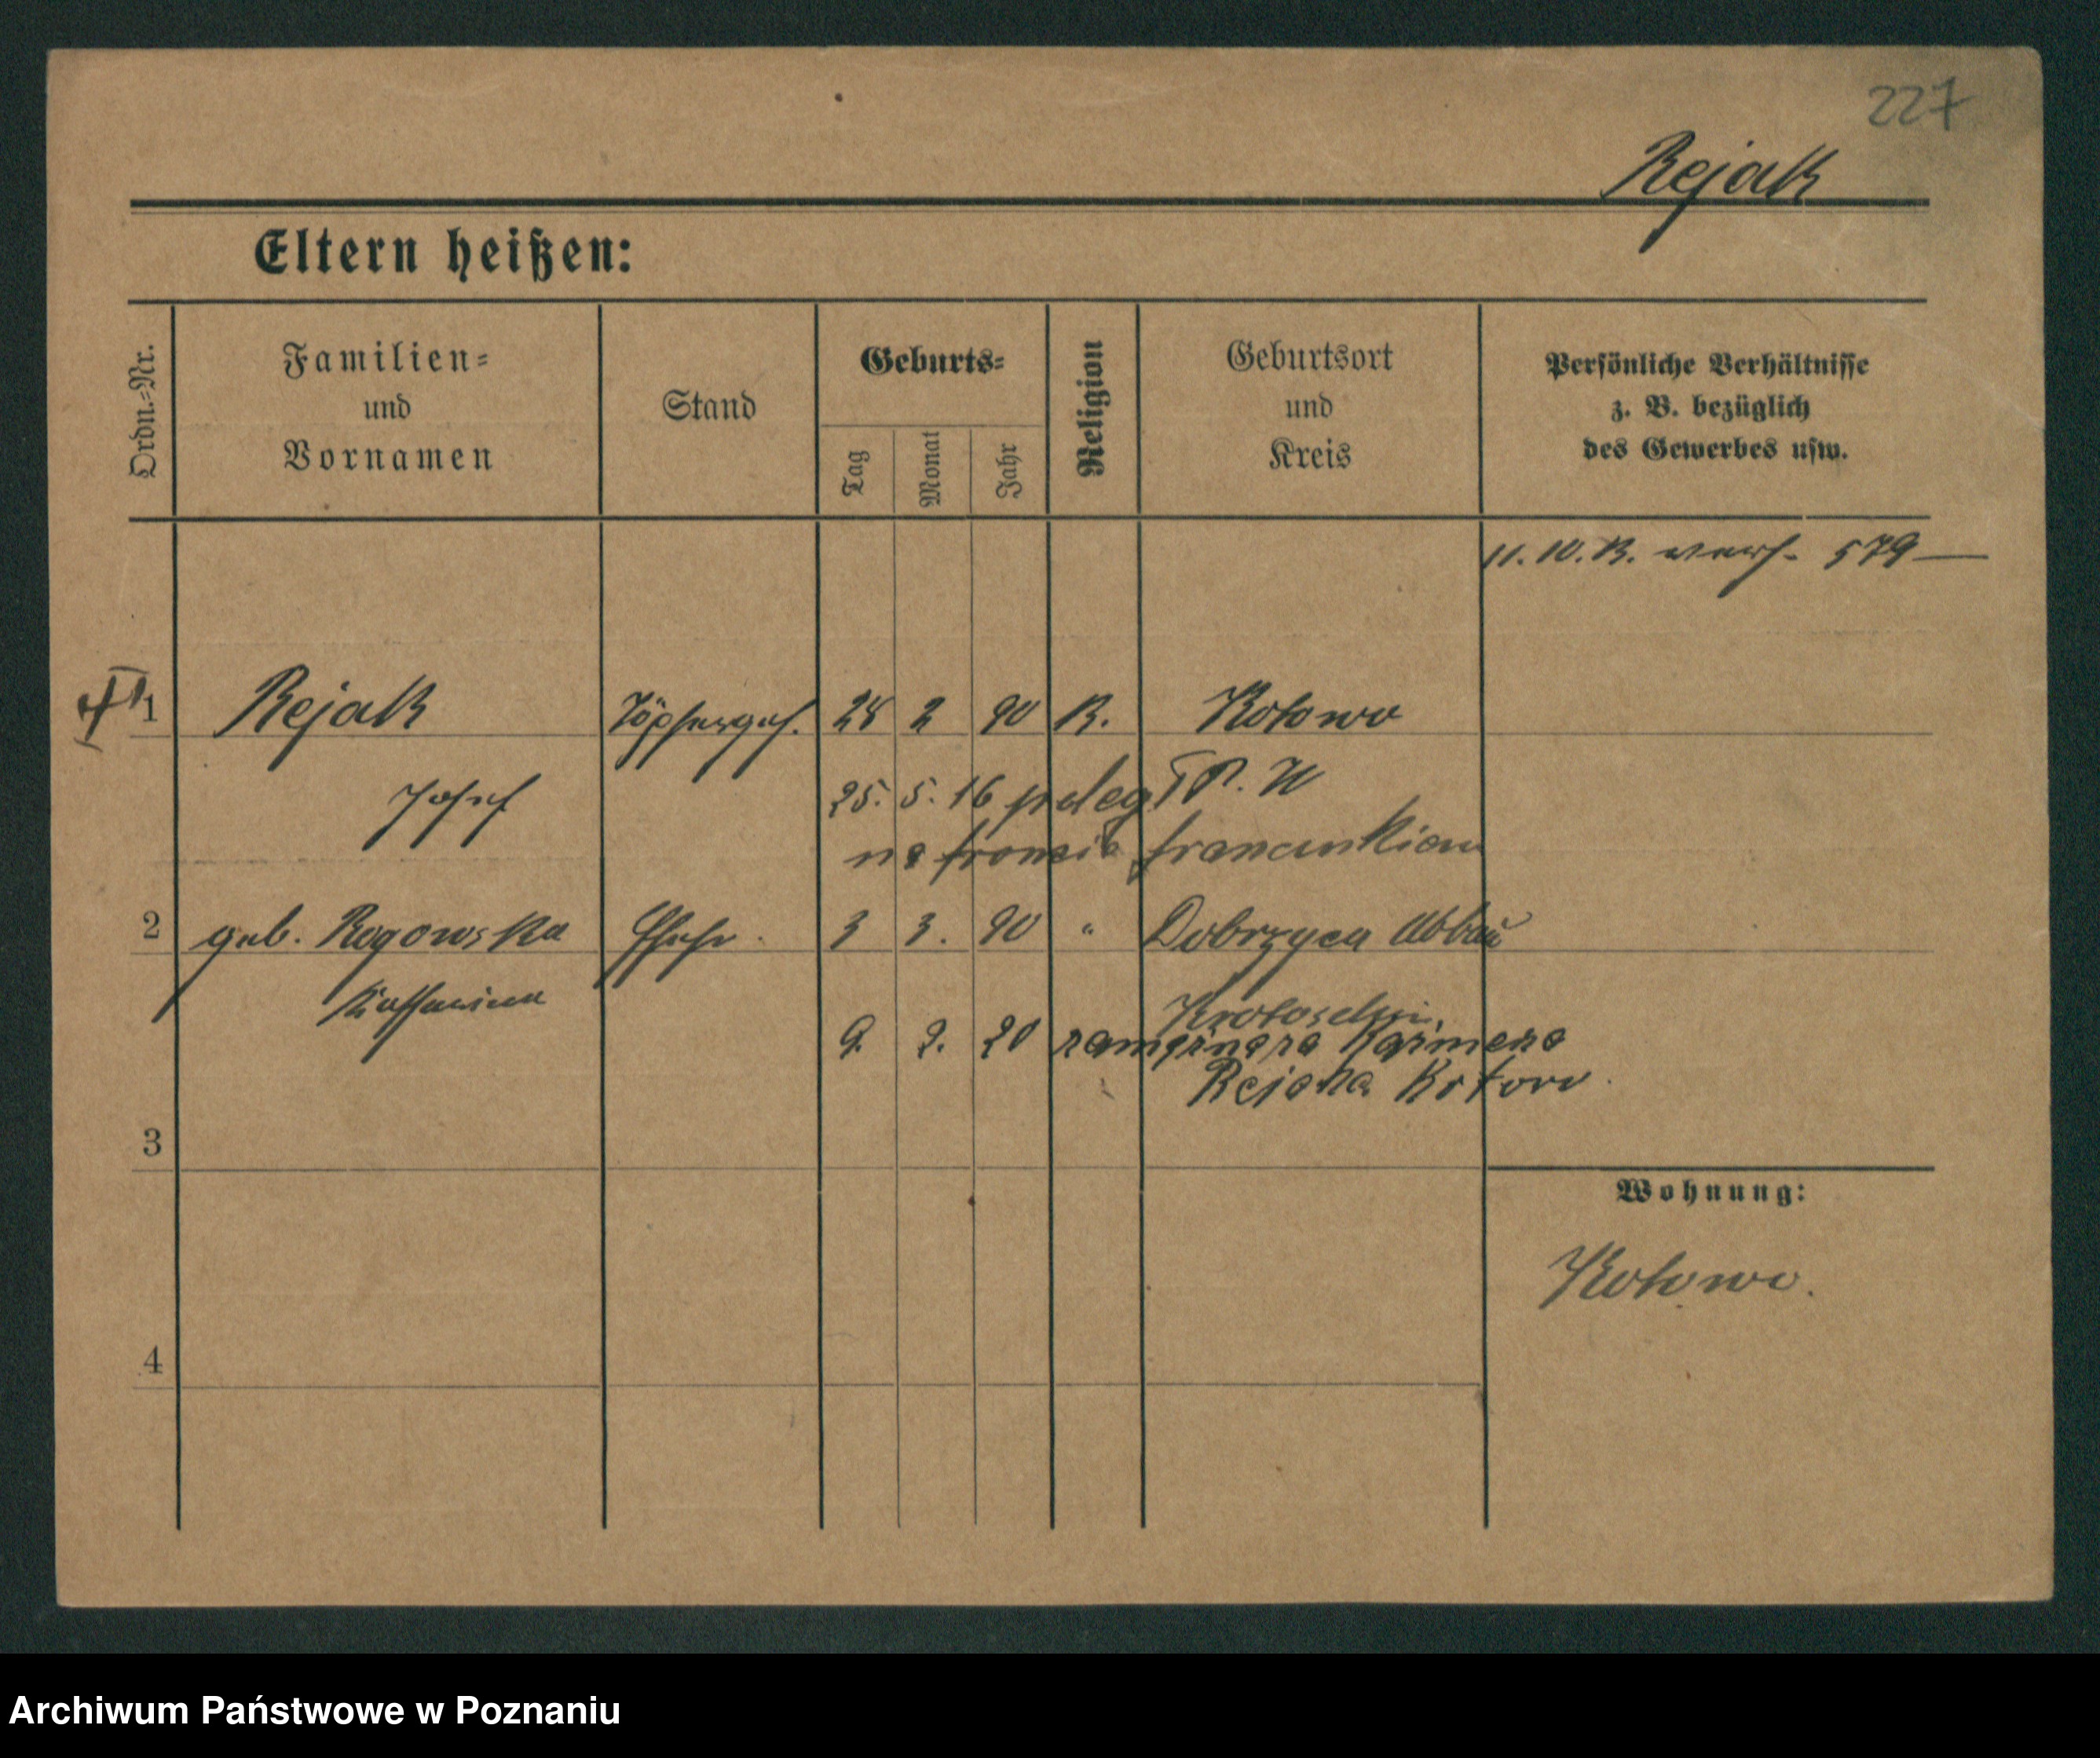 227
Rejak
Eltern heißen:
Ordn.-Nr.
Familien-
und
Vornamen
Stand
Geburts-
Tag
Monat
Jahr
Religion
Geburtsort
und
Kreis
Persönliche Verhältnisse
z. B. bezüglich
des Gewerbes usw.
11. 10. 13. verh. 579
1 Rejak Töpferges. 28 2 90 K. Kotowo
Josef 25. 5. 16 poległ P. W
na froncie francuskiem
2 geb. Rogowska Ehefr. 3 3. 90 " Dobrzyca Abbau
Katharina Krotoschin.
9. 2. 20 zamężna za Kaźmierza
Rejaka Kotowo
3
Wohnung:
Kotowo.
4
Archiwum Państwowe w Poznaniu